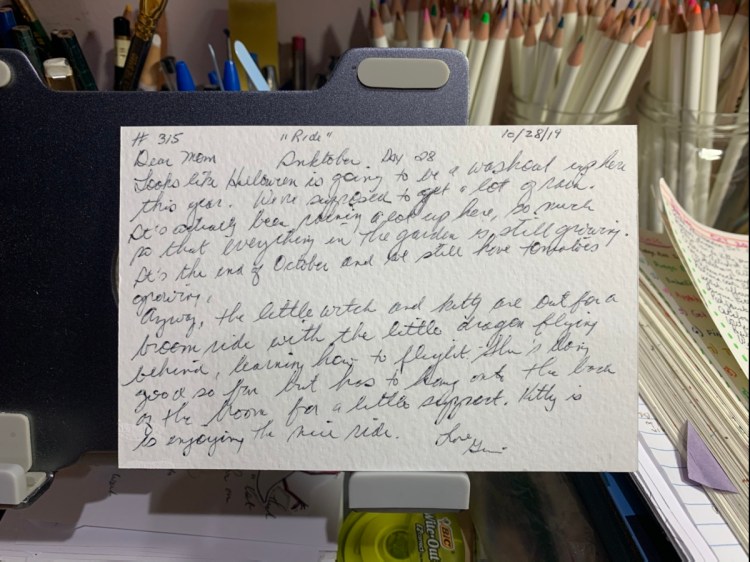 # 315 "Ride" 10/28/19
Dear Mom Inktober. Day 28
Looks like Halloween is going to be a washout up here
this year. We're supposed to get a lot of rain.
It's actually been raining a lot up here, so much
so that everything in the garden is still growing.
It's the end of October and we still have tomatoes
growing.
Anyway, the little witch and kitty are out for a
broom ride with the little dragon flying
behind, learning how to flight. She's doing
good so far but has to hang onto the back
of the broom for a little support. Kitty is
is enjoying the nice ride. Love,
BIC
Wite-Out